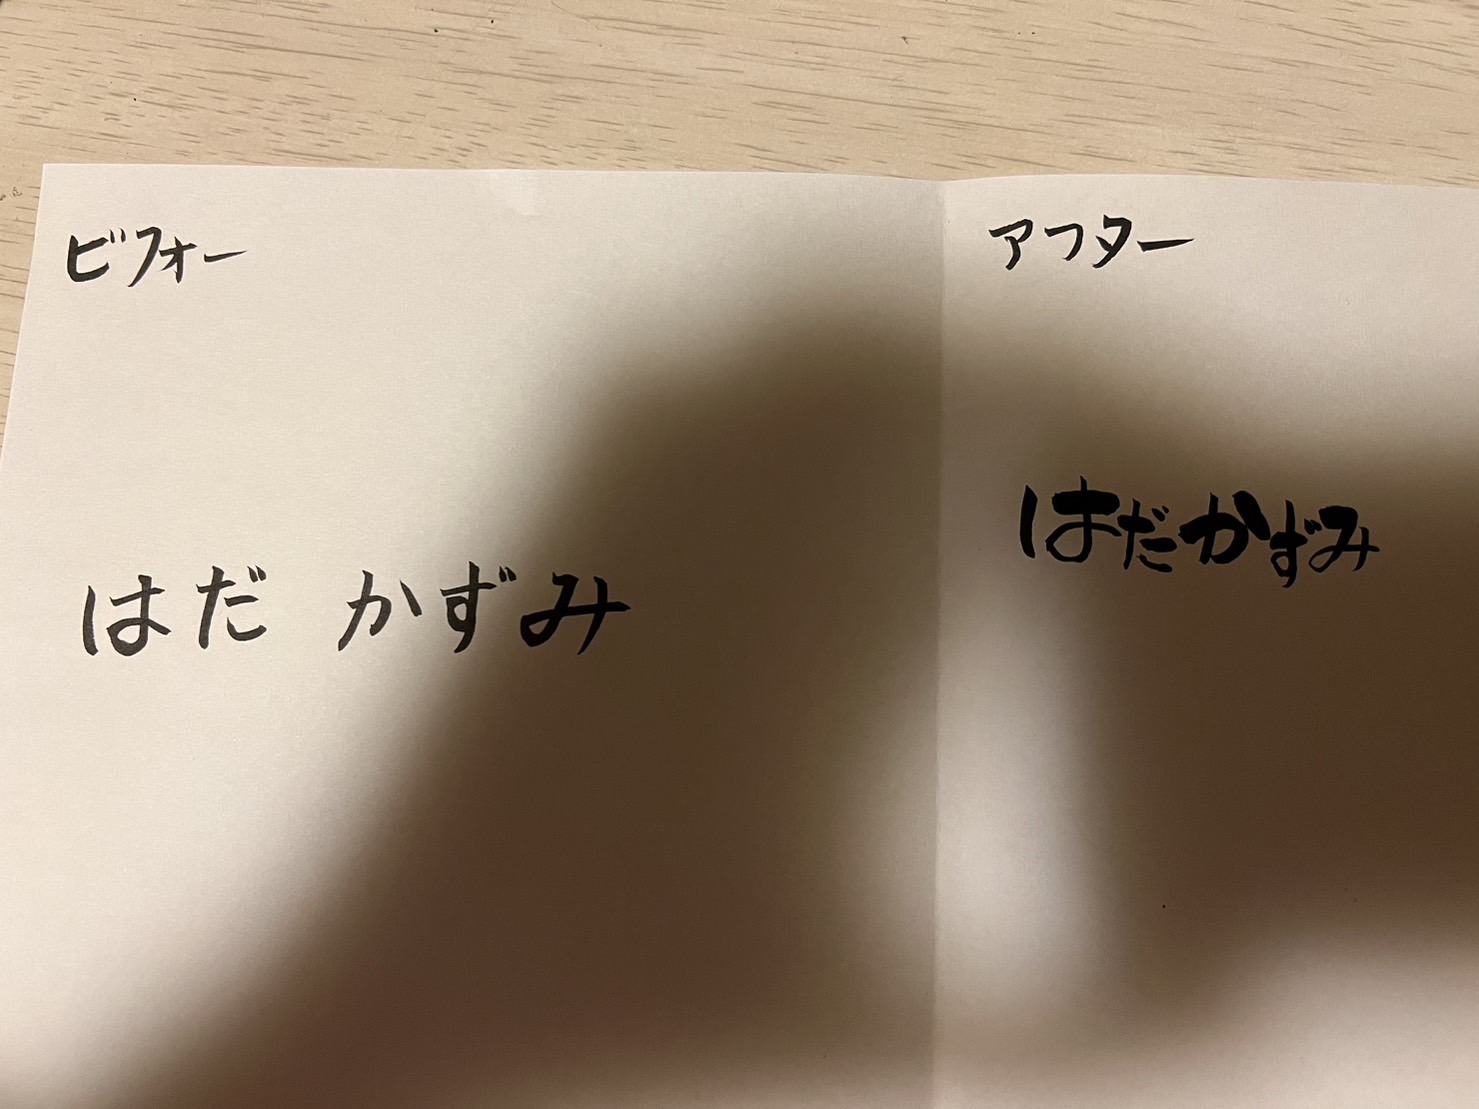 ビフォー
はだ かずみ
アフター
はだかずみ